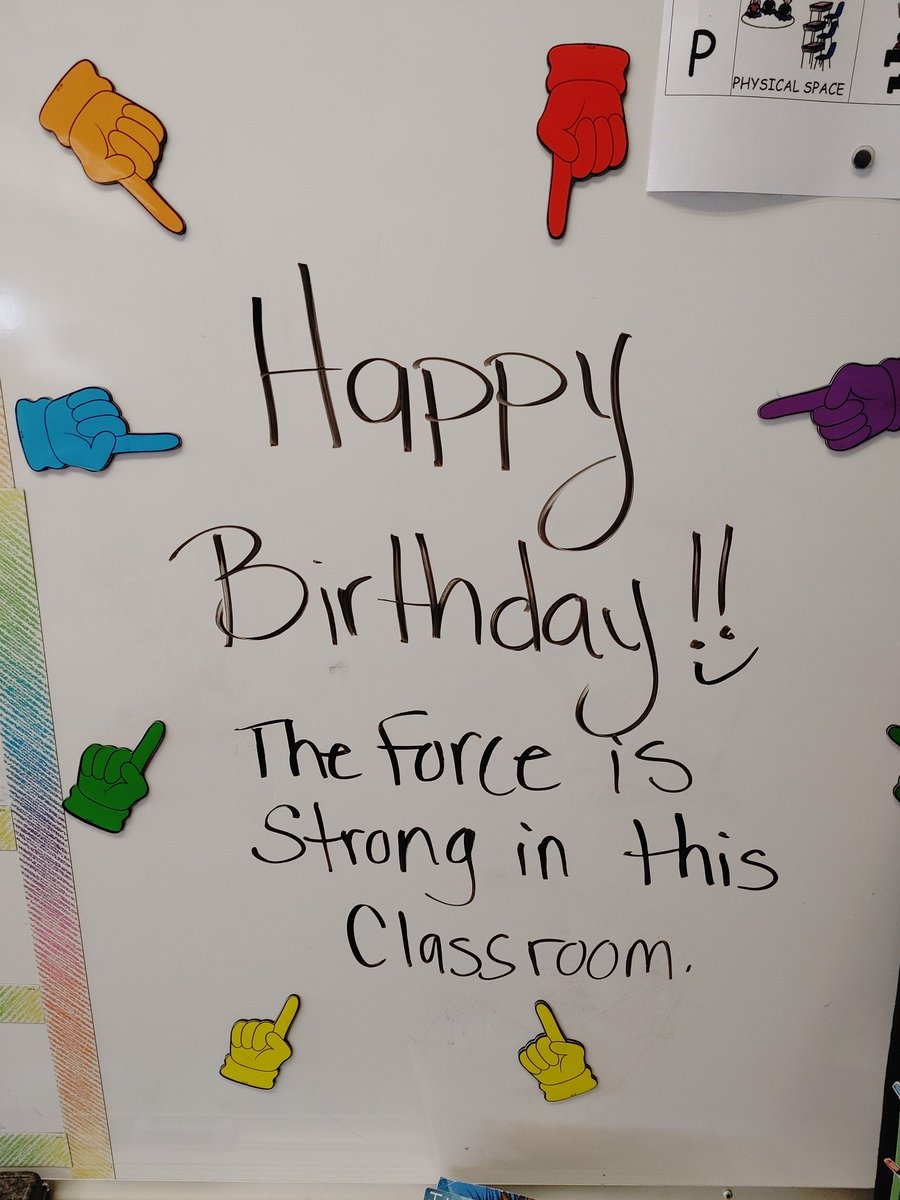 P
PHYSICAL SPACE
Happy
Birthday!!
The Force is
Strong in this
Classroom.